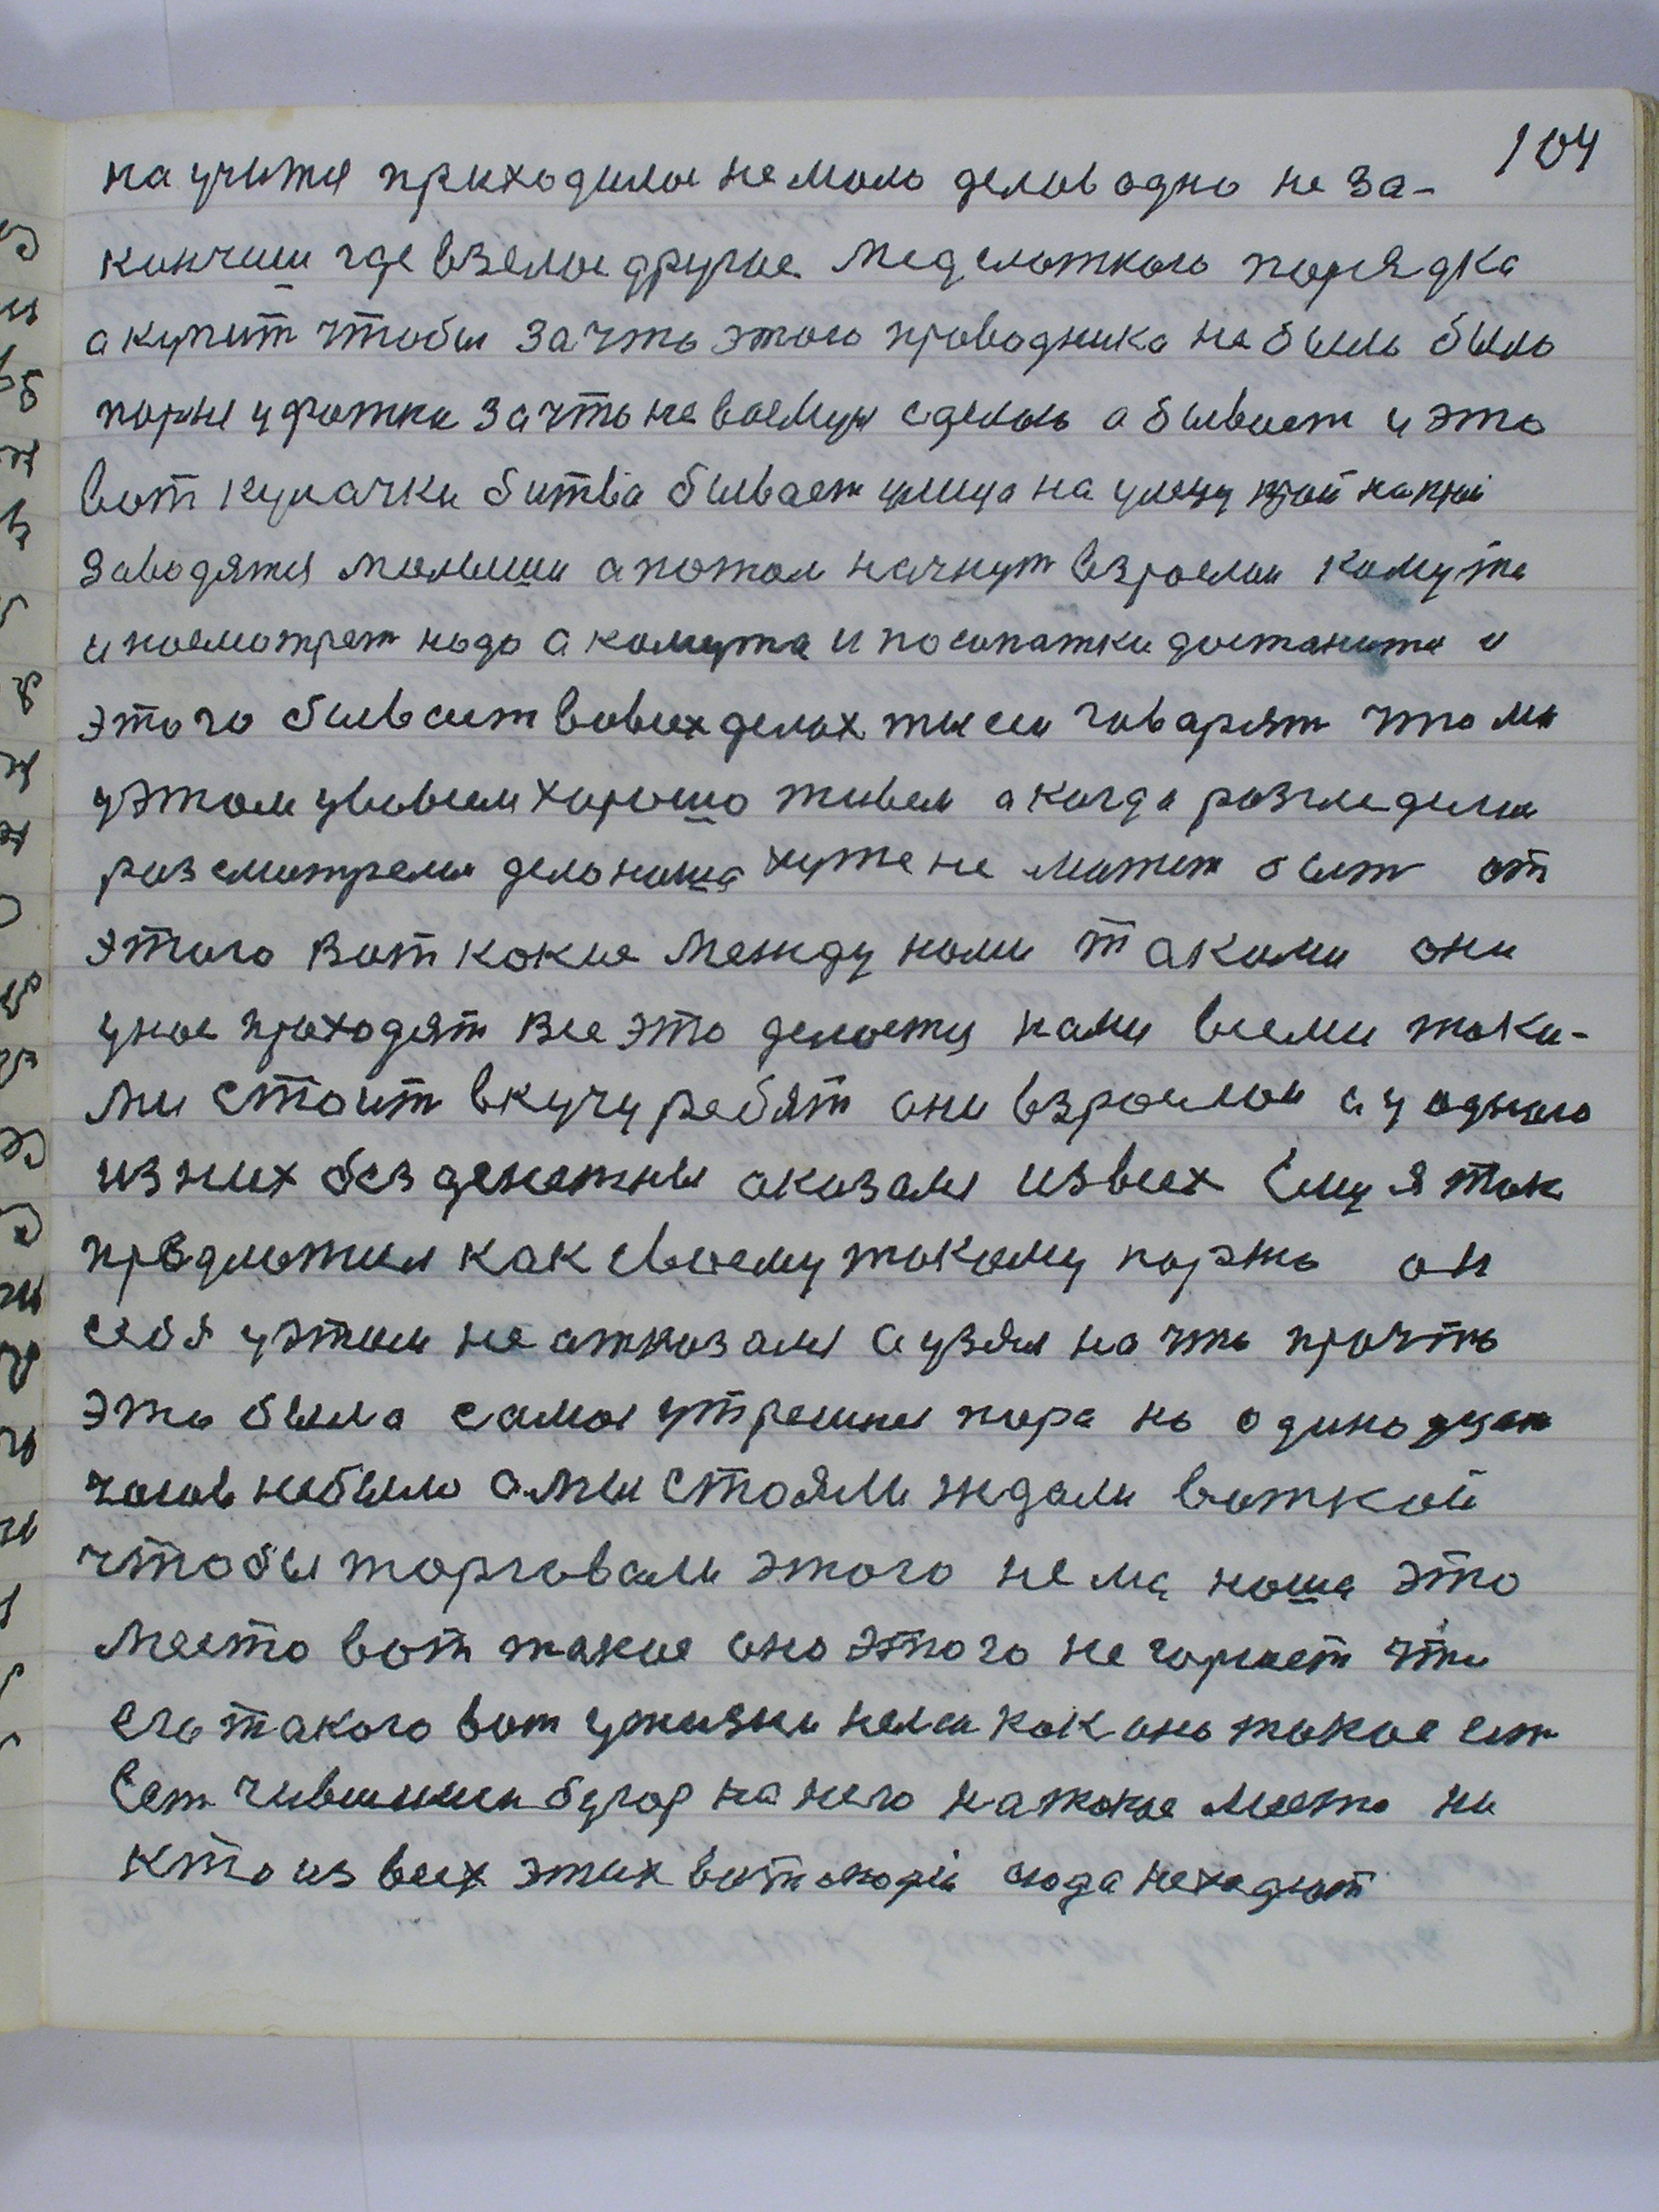 104
научится приходилос немало делов одно не за-
кончиш где взелос другое недслоткого порядка
а купит чтобы зачть этого проводника не было было
порные уфоткы зачто не воемуя сделаль а бывает и это
вот кулачки битва бывает улица на улецу край накрай
заводятся малыши апотом начнут взрослаи кому та
и посмотрет надо а комута и посопатки достанится и
этого бываит вовсех делах ты си гаварят что мы
уэтом увовсем хорошо живем а когда розгледили
розсмотрели дело наша хуже не может быт от
этого вот кокие между номи такоми они
унос проходят все это делоется нами всеми токи-
ми стоит вкучу ребят они взрослои а у одного
изних без денежны оказался извсех Ему я так
продлотил как своему токому
он
себя уэтом не атказался а узял на что прочть
эть была самоя утрешняя пора но одиноцат
часов небыло а мы стояли ждали воткой
чтобы торговали этого нема наша это
место вот такое оно этого не
что
его такого вот ужизни нема как оно токое ест
Сет чивилкин бугор на него на токое место ни
кто из всех этих вот людей сюда неходит